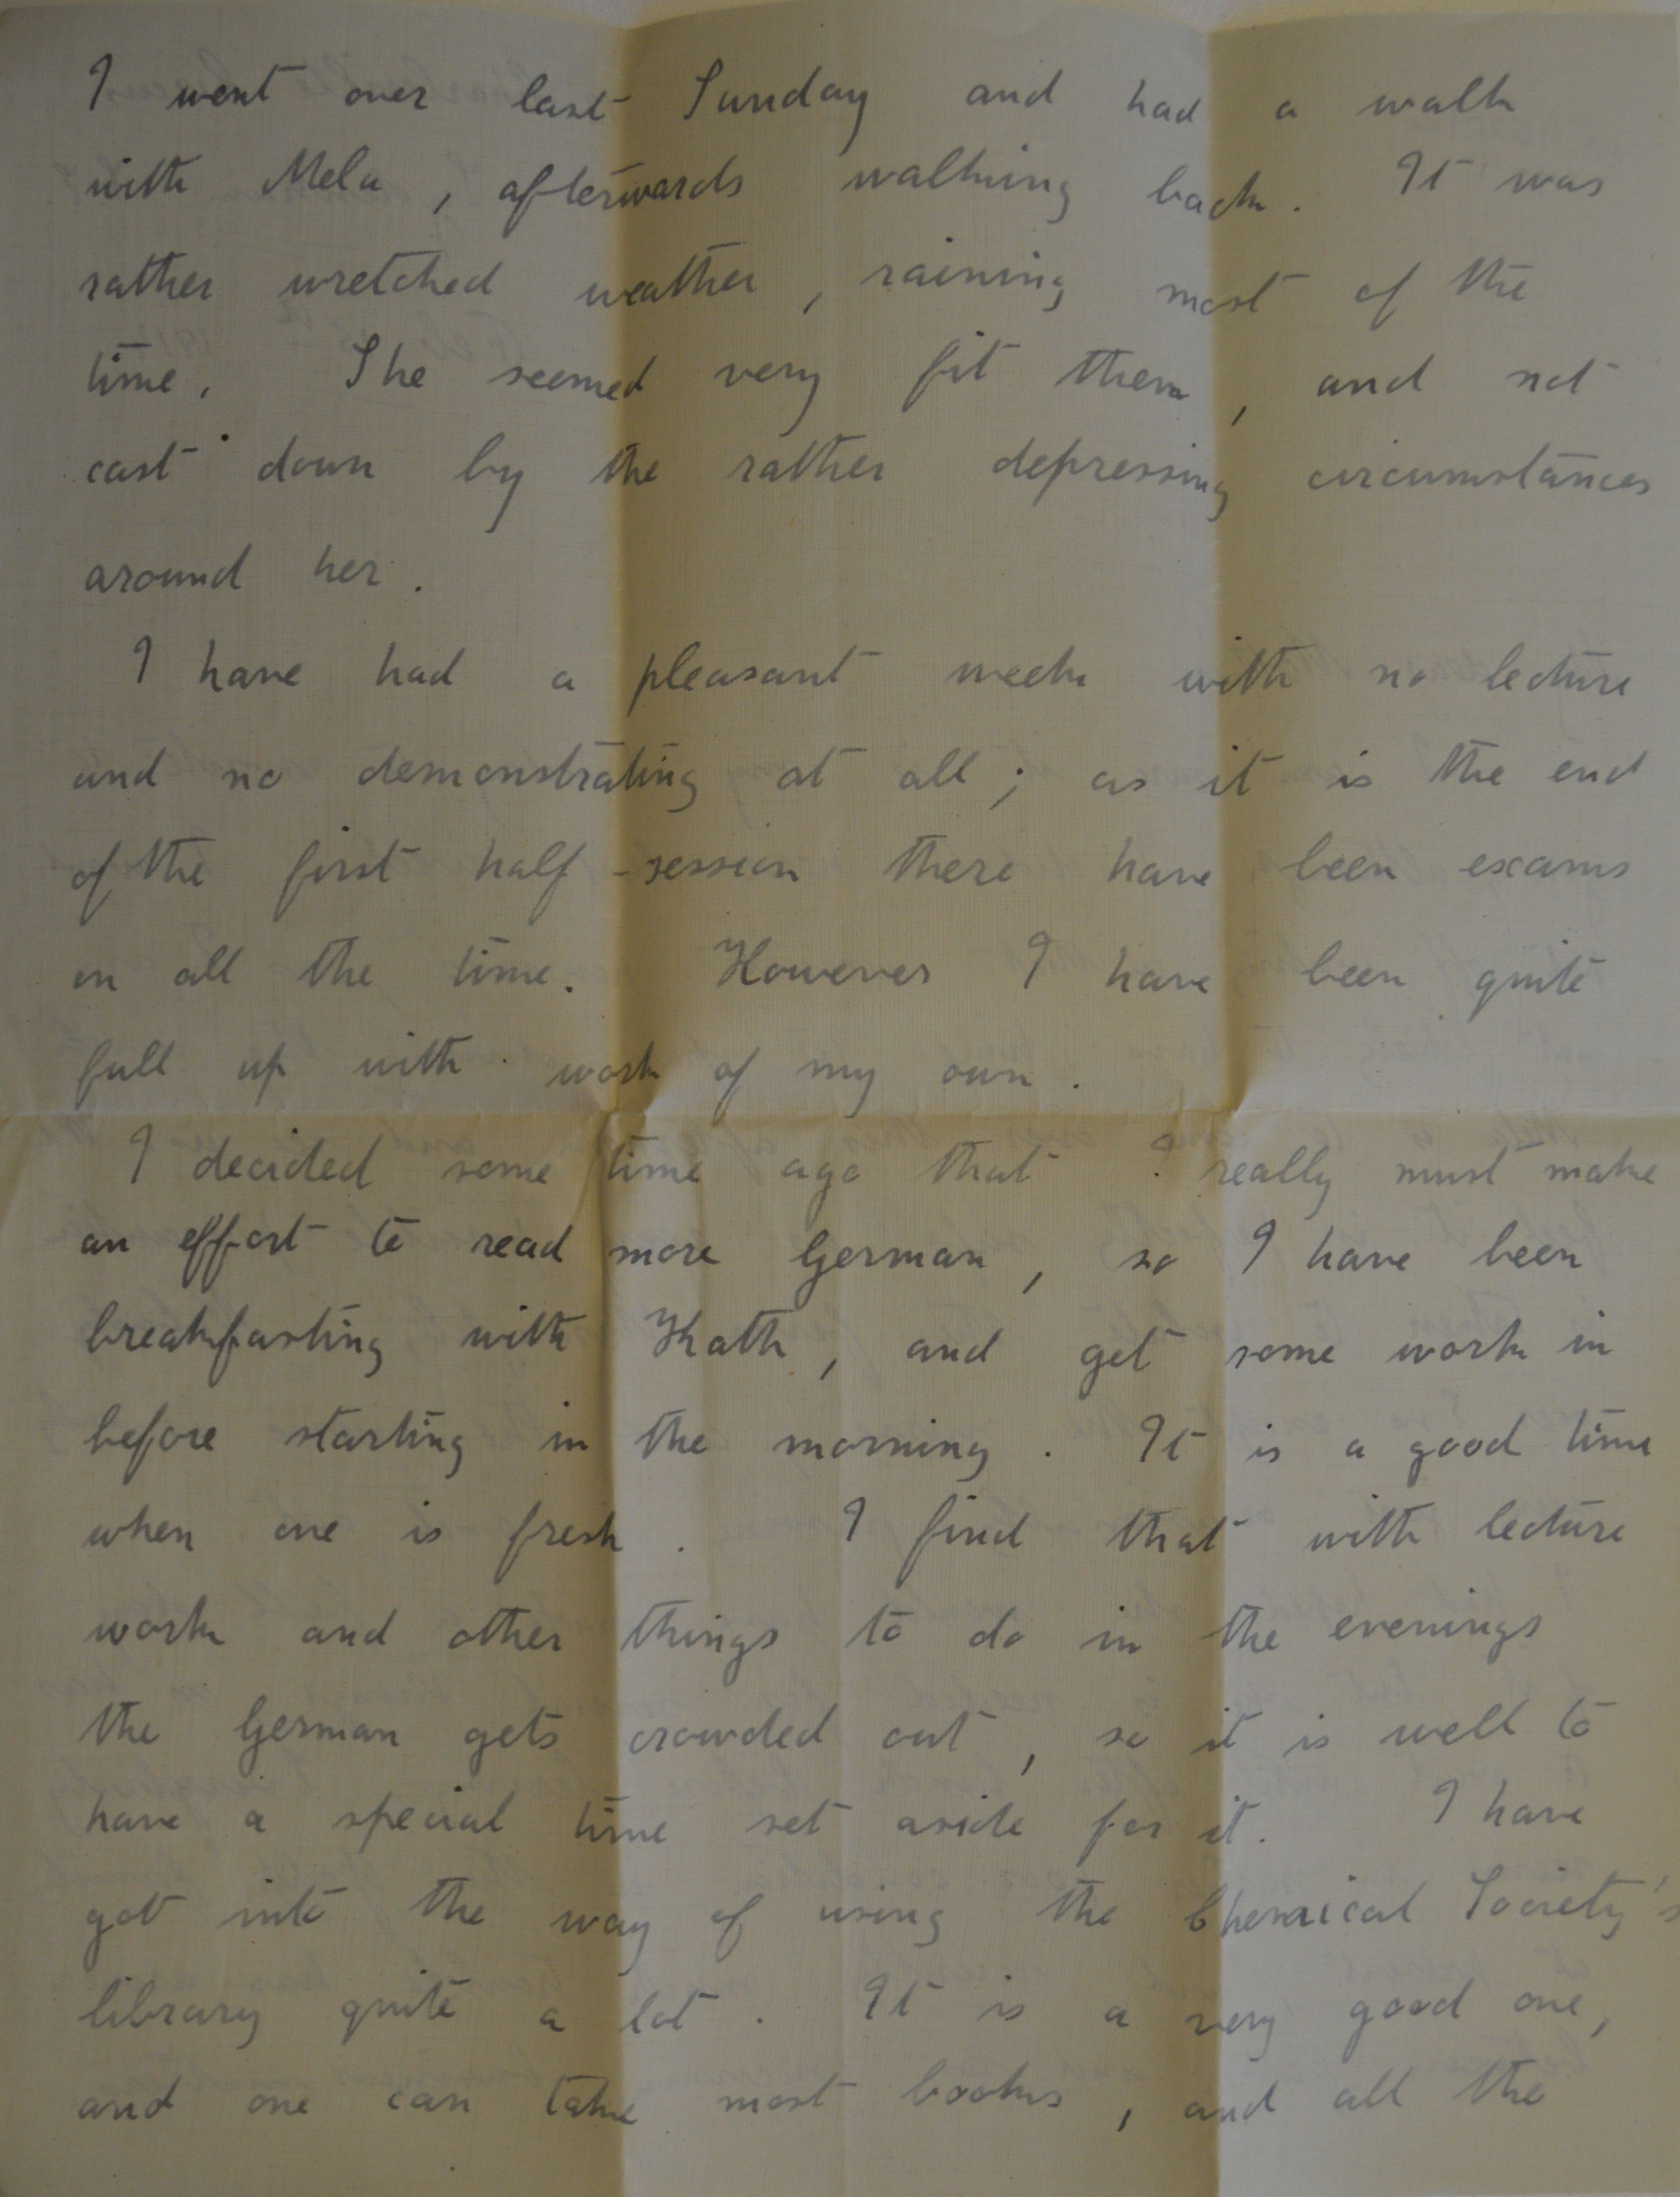 I went over last Sunday and had a walk
with Mela, afterwards walking back. It was
rather wretched weather, raining most of the
time. She seemed very fit then, and not
cast down by the rather depressing circumstances
around her.
I have had a pleasant week with no lecture
and no demonstrating at all; as it is the end
of the first half-session there have been exams
on all the time. However I have been quite
full up with work of my own.
I decided some time ago that I really must make
an effort to read more German, so I have been
breakfasting with Kath, and get some work in
before starting in the morning. It is a good time
when one is fresh. I find that with lecture
work and other things to do in the evenings
the German gets crowded out, so it is well to
have a special time set aside for it. I have
got into the way of using the Chemical Society's
library quite a lot. It is a very good one,
and one can take most books, and all the